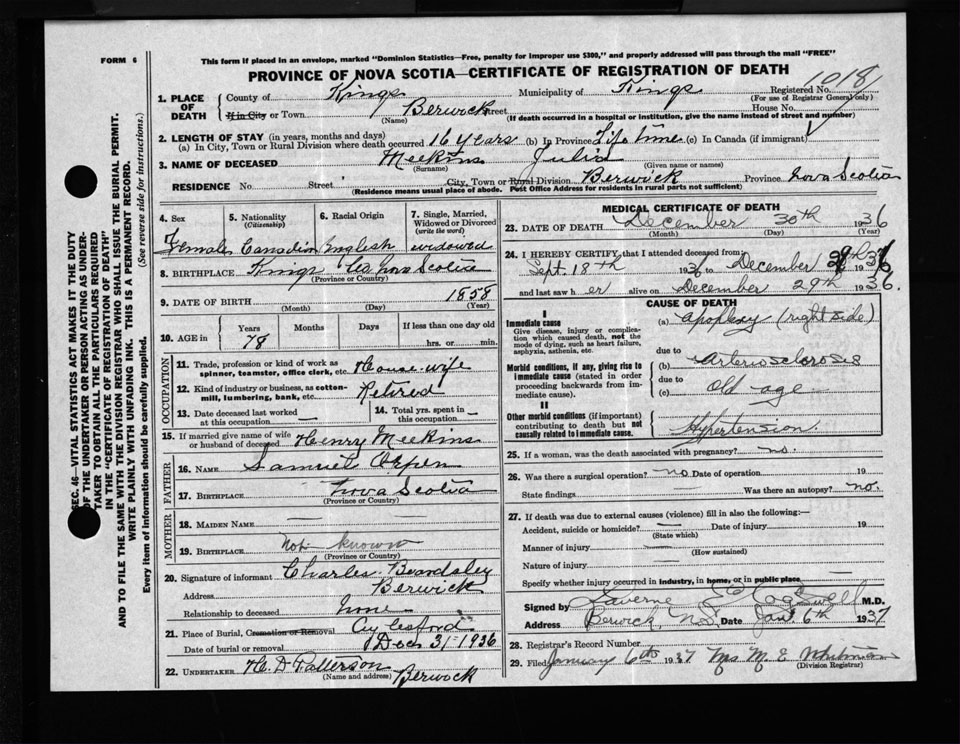 FORM 6
This form if placed in an envelope, marked "Dominion Statistics—Free, penalty for improper use $300," and properly addressed will pass through the mail "FREE"
PROVINCE OF NOVA SCOTIA—CERTIFICATE OF REGISTRATION OF DEATH
1018
1. PLACE OF DEATH { County of Kings Municipality of Kings Registered No.
(For use of Registrar General only)
If in City or Town Berwick Street House No.
(Name) (If death occurred in a hospital or institution, give the name instead of street and number)
2. LENGTH OF STAY (in years, months and days)
(a) In City, Town or Rural Division where death occurred 16 years (b) In Province Life time (c) In Canada (if immigrant)
3. NAME OF DECEASED Meekins Julia
(Surname) (Given name or names)
RESIDENCE No. Street City, Town or Rural Division Berwick Province Nova Scotia
(Residence means usual place of abode. Post Office Address for residents in rural parts not sufficient)
4. Sex 5. Nationality (Citizenship) 6. Racial Origin 7. Single, Married, Widowed or Divorced (write the word)
Female Canadian English widowed
8. BIRTHPLACE Kings Co Nova Scotia
(Province or Country)
9. DATE OF BIRTH 1858
(Month) (Day) (Year)
10. AGE in { Years Months Days If less than one day old
78 hrs. or min.
OCCUPATION
11. Trade, profession or kind of work as spinner, teamster, office clerk, etc. House-wife
12. Kind of industry or business, as cotton-mill, lumbering, bank, etc. Retired
13. Date deceased last worked at this occupation — 14. Total yrs. spent in this occupation —
15. If married give name of wife or husband of deceased Henry Meekins
FATHER
16. NAME Samuel Orpen
17. BIRTHPLACE Nova Scotia
(Province or Country)
MOTHER
18. MAIDEN NAME — —
19. BIRTHPLACE not known
(Province or Country)
20. Signature of informant Charles Beardsley
Address Berwick
Relationship to deceased none
21. Place of Burial, Cremation or Removal Aylesford
Date of burial or removal Dec 31-1936
22. UNDERTAKER H. D Patterson Berwick
(Name and address)
MEDICAL CERTIFICATE OF DEATH
23. DATE OF DEATH December 30th 1936
(Month) (Day) (Year)
24. I HEREBY CERTIFY that I attended deceased from
Sept. 18th 1936 to December 29th 1936
and last saw her alive on December 29th 1936.
CAUSE OF DEATH
I
Immediate cause
Give disease, injury or complication which caused death, not the mode of dying, such as heart failure, asphyxia, asthenia, etc.
(a) apoplexy (right side)
due to
Morbid conditions, if any, giving rise to immediate cause (stated in order proceeding backwards from immediate cause).
(b) Arteriosclerosis
due to
(c) Old age
II
Other morbid conditions (if important) contributing to death but not causally related to immediate cause.
Hypertension.
25. If a woman, was the death associated with pregnancy? no.
26. Was there a surgical operation? no Date of operation 19
State findings Was there an autopsy? no.
27. If death was due to external causes (violence) fill in also the following:—
Accident, suicide or homicide? — Date of injury 19
(State which)
Manner of injury —
(How sustained)
Nature of injury —
Specify whether injury occurred in industry, in home, or in public place
Signed by Laverne E Cogswell M.D.
Address Berwick, N.S. Date Jan 6th 1937
28. Registrar's Record Number
29. Filed January 6th 1937 Mrs M. E Whitman
(Division Registrar)
SEC. 46—VITAL STATISTICS ACT MAKES IT THE DUTY
OF THE UNDERTAKER OR PERSON ACTING AS UNDER-
TAKER TO OBTAIN ALL THE PARTICULARS REQUIRED
IN THE "CERTIFICATE OF REGISTRATION OF DEATH"
AND TO FILE THE SAME WITH THE DIVISION REGISTRAR WHO SHALL ISSUE THE BURIAL PERMIT.
WRITE PLAINLY WITH UNFADING INK. THIS IS A PERMANENT RECORD.
Every item of information should be carefully supplied. (See reverse side for instructions.)